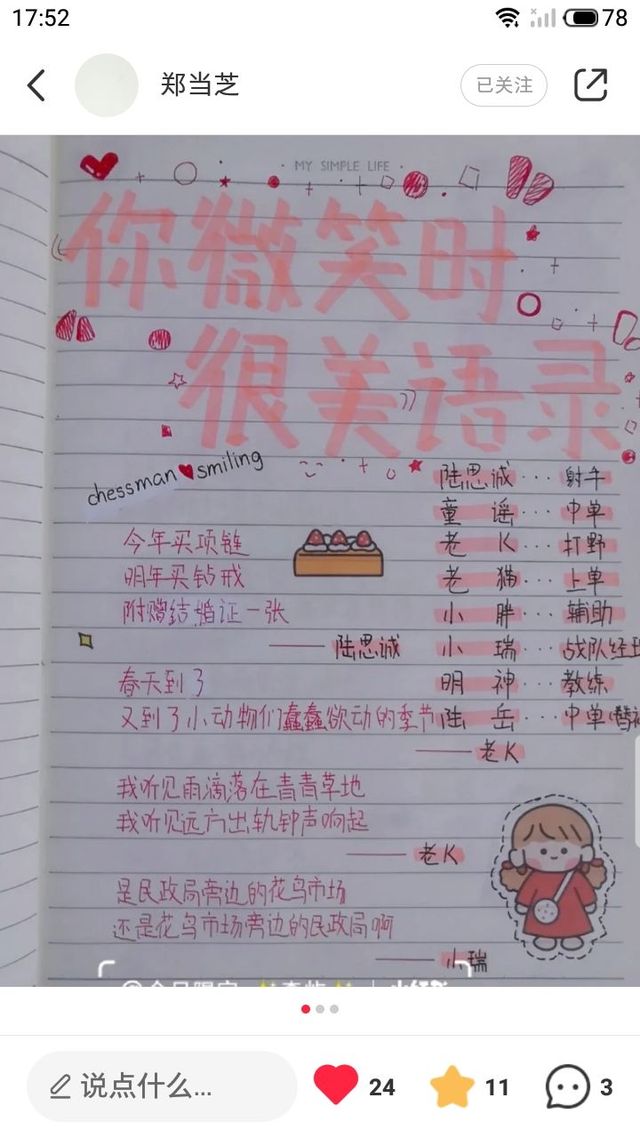 17:52
78
郑当芝
已关注
MY SIMPLE LIFE
“你微笑时
很美语录”
chessman smiling
陆思诚···射手
童谣···中单
老K···打野
老猫···上单
小胖···辅助
小瑞···战队经理
明神···教练
陆岳···中单(替补
今年买项链
明年买钻戒
附赠结婚证一张
——陆思诚
春天到了
又到了小动物们蠢蠢欲动的季节
——老K
我听见雨滴落在青青草地
我听见远方出轨钟声响起
——老K
是民政局旁边的花鸟市场
还是花鸟市场旁边的民政局啊
——小瑞
说点什么...
24
11
3